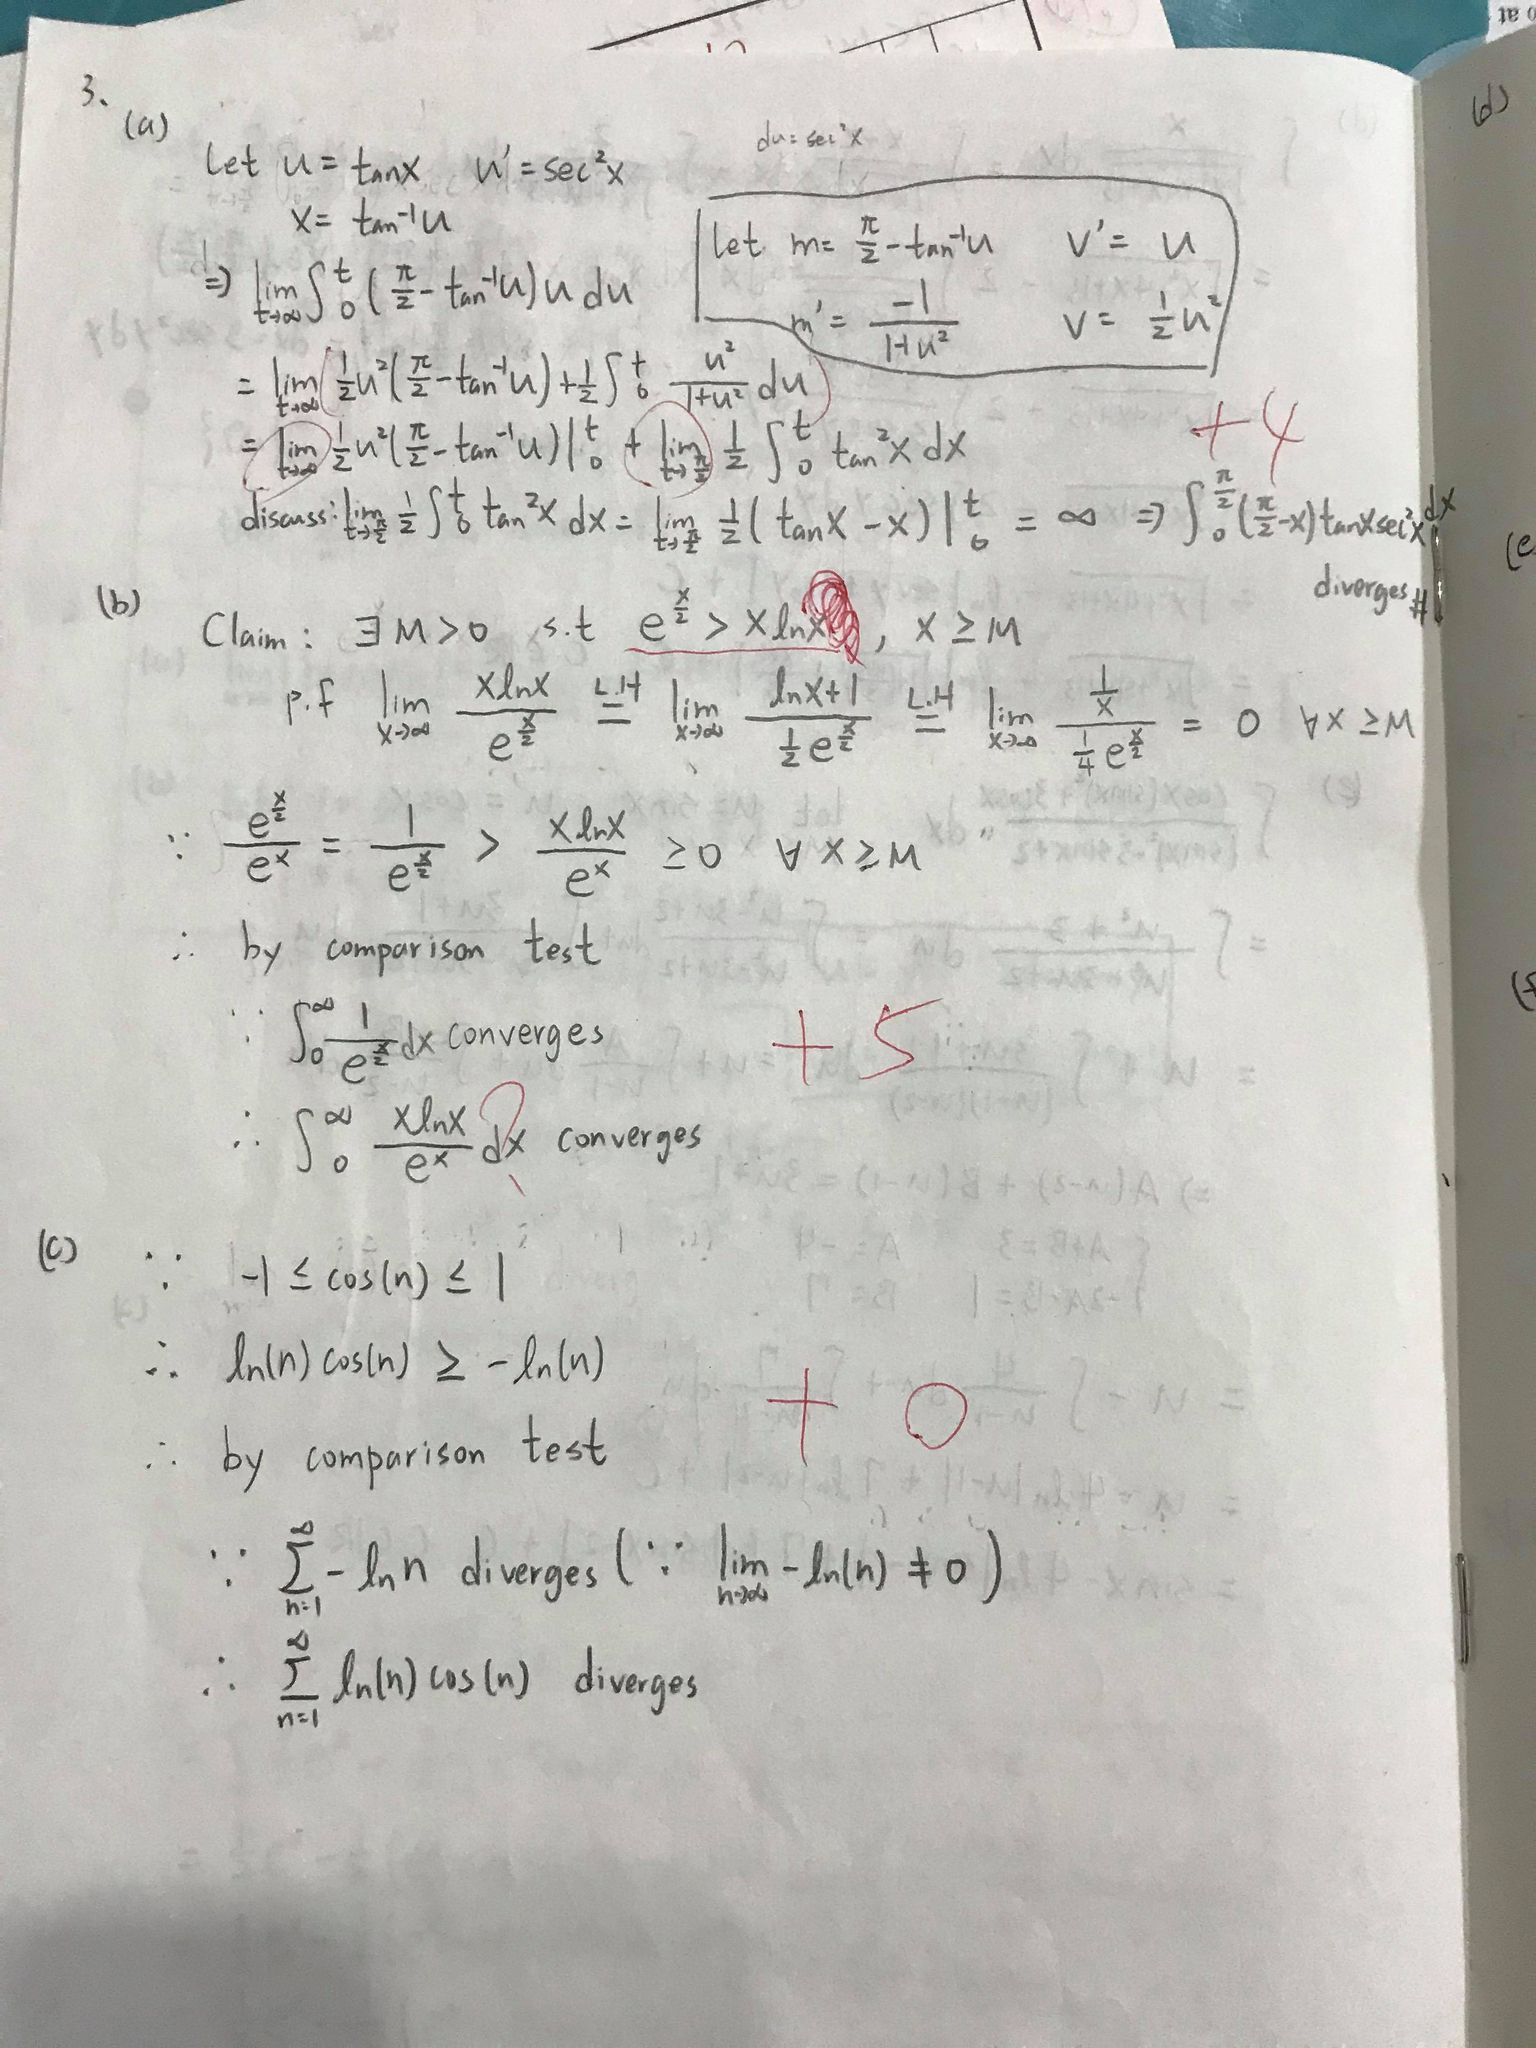 3.
(a)
du = sec²x
Let u = tanx u' = sec²x
x = tan⁻¹u
let m = π/2 - tan⁻¹u v' = u
m' = -1/(1+u²) v = 1/2 u²
⇒ lim t→∞ ∫₀ᵗ (π/2 - tan⁻¹u) u du
= lim t→∞ 1/2 u² (π/2 - tan⁻¹u) + 1/2 ∫₀ᵗ u²/(1+u²) du
+4
= lim t→∞ 1/2 u² (π/2 - tan⁻¹u) |₀ᵗ + lim t→π/2 1/2 ∫₀ᵗ tan²x dx
discuss: lim t→π/2 1/2 ∫₀ᵗ tan²x dx = lim t→π/2 1/2 (tanx - x) |₀ᵗ = ∞ ⇒ ∫₀^(π/2) (π/2 - x) tanx sec²x dx
diverges #
(b)
Claim: ∃ M > 0 s.t e^(x/2) > x lnx, x ≥ M
p.f lim x→∞ xlnx/e^(x/2) =(L.H) lim x→∞ (lnx+1)/(1/2 e^(x/2)) =(L.H) lim x→∞ (1/x)/(1/4 e^(x/2)) = 0 ∀x ≥ M
∵ e^(x/2)/e^x = 1/e^(x/2) > xlnx/e^x ≥ 0 ∀ x ≥ M
∴ by comparison test
∵ ∫₀^∞ 1/e^(x/2) dx converges
+5
∴ ∫₀^∞ xlnx/e^x dx converges
?
(c)
∵ -1 ≤ cos(n) ≤ 1
∴ ln(n) cos(n) ≥ -ln(n)
+0
∴ by comparison test
∵ Σ n=1 ∞ - ln n diverges (∵ lim n→∞ -ln(n) ≠ 0)
∴ Σ n=1 ∞ ln(n) cos(n) diverges
(d)
(e
(f